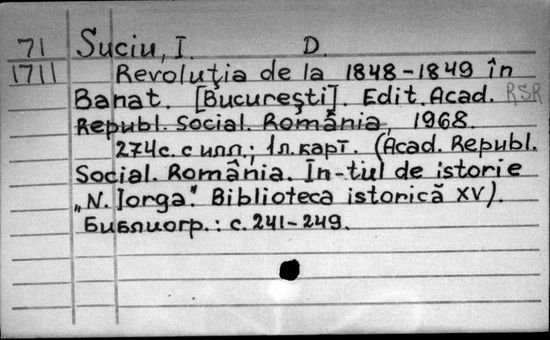 71 Suciu, I. D.
1711 Revoluţia de la 1848-1849 în
Banat. [Bucureşti]. Edit. Acad. RSR
Republ. Social. România, 1968.
274с. с илл.; 1л. карт. (Acad. Republ.
Social. România. În-tul de istorie
„N. Iorga". Biblioteca istorică XV).
Библиогр.: с. 241-249.